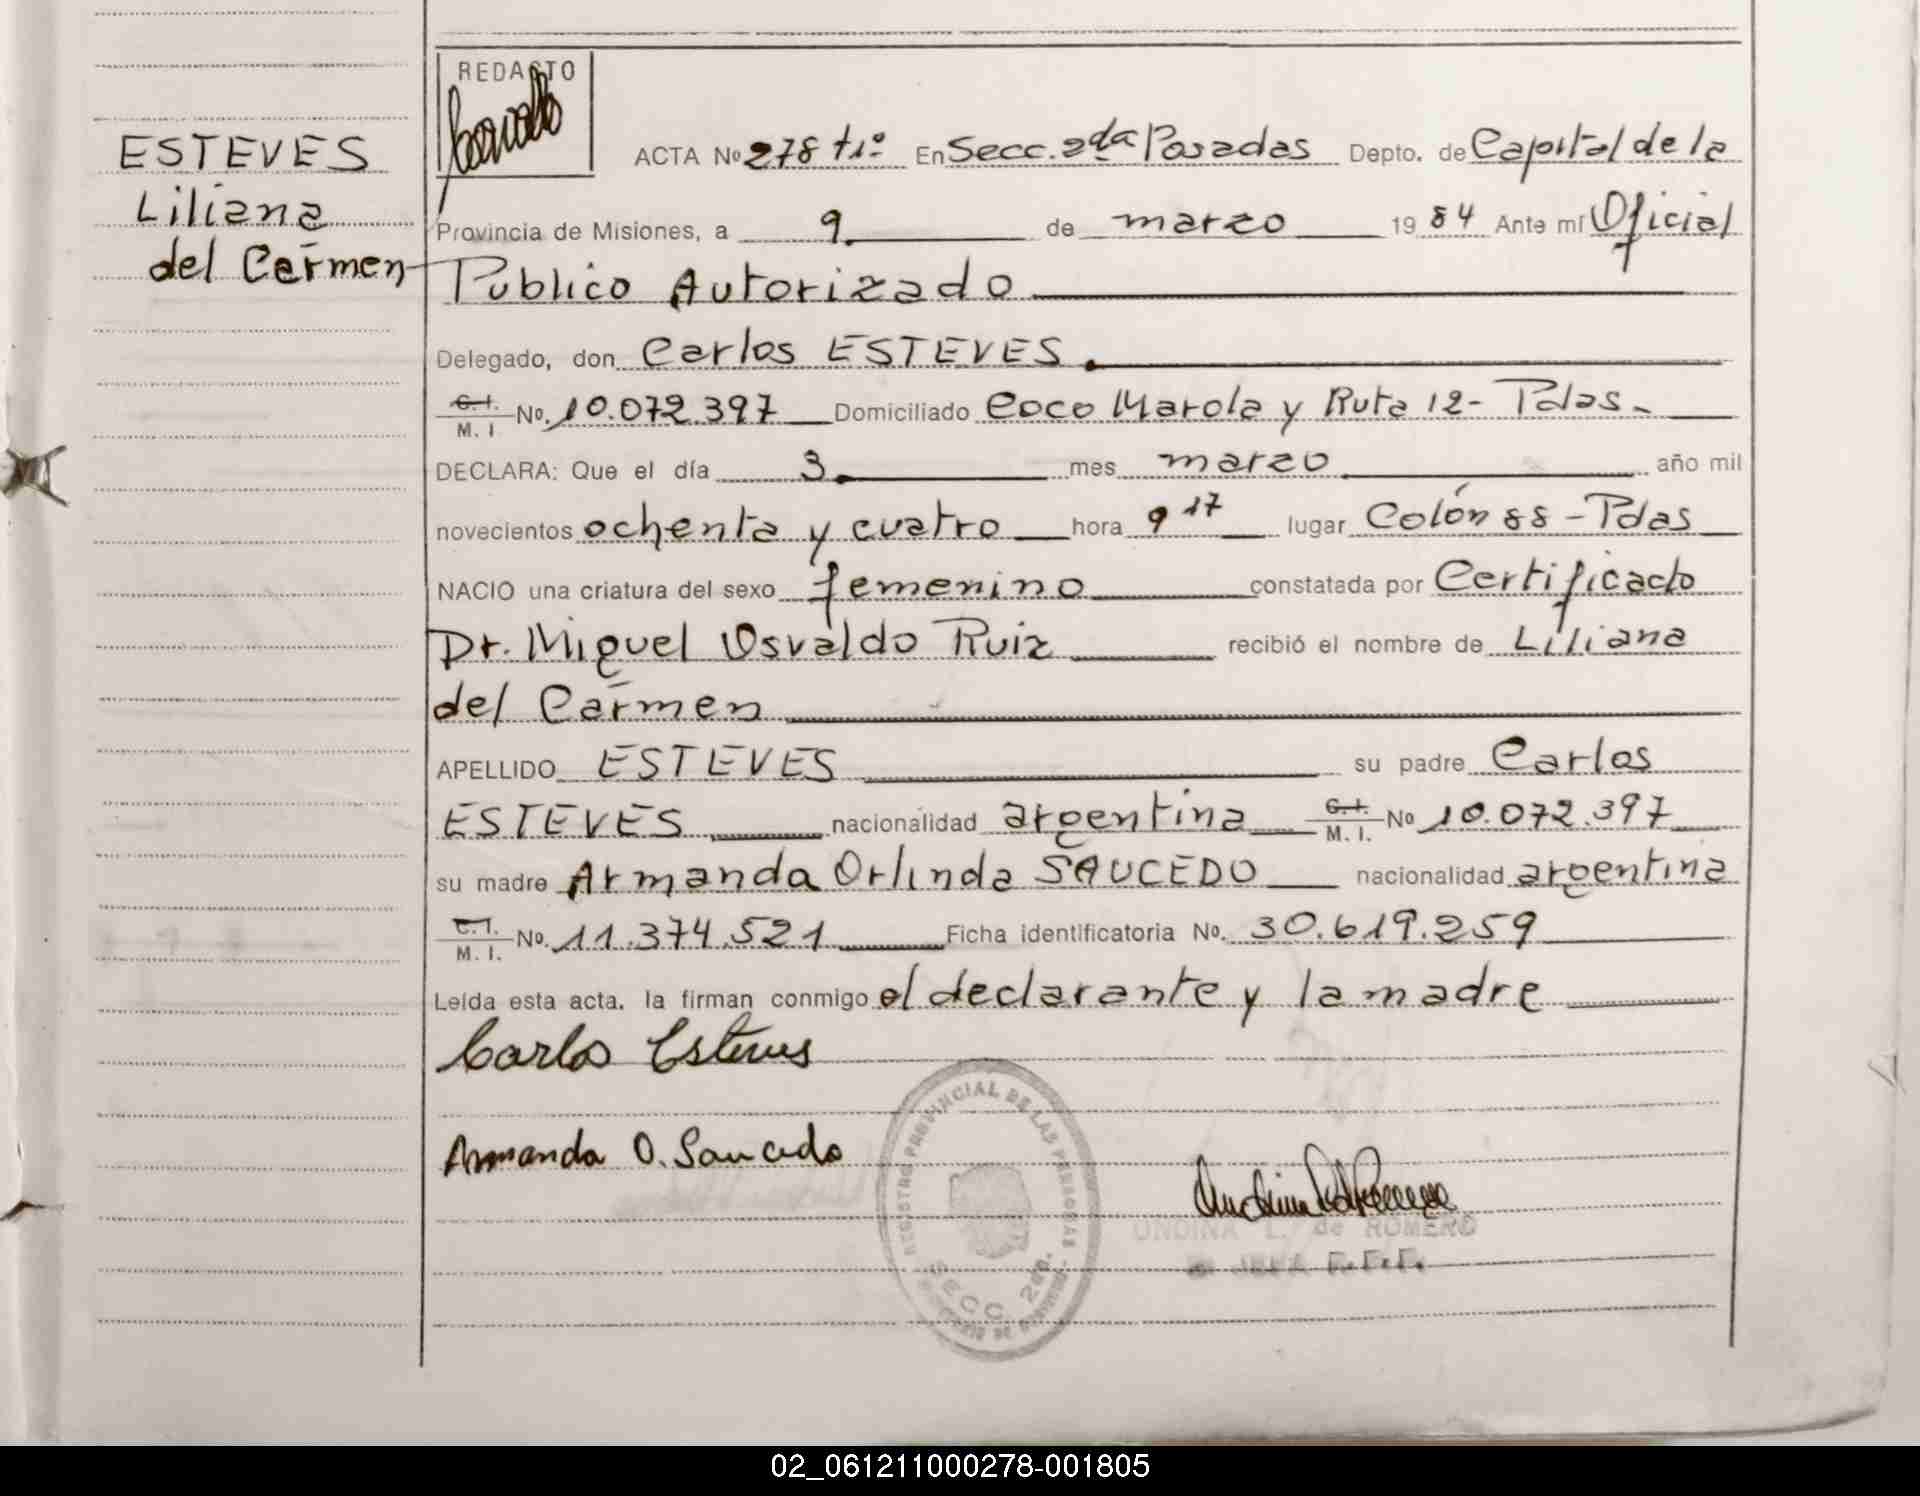 ESTEVES
Liliana
del Cármen
REDACTO
ACTA Nº 278 tiº En Secc. 2da Posadas Depto. de Capital de la
Provincia de Misiones, a 9 de marzo 1984 Ante mí Oficial
Publico Autorizado
Delegado, don Carlos ESTEVES.
C.I. M.I. No. 10.072.397 Domiciliado Coco Marola y Ruta 12 - Pdas.
DECLARA: Que el día 3 mes marzo año mil
novecientos ochenta y cuatro hora 9 17 lugar Colón 88 - Pdas
NACIO una criatura del sexo femenino constatada por Certificado
Dr. Miguel Osvaldo Ruiz recibió el nombre de Liliana
del Cármen
APELLIDO ESTEVES su padre Carlos
ESTEVES nacionalidad argentina C.I. M.I. No 10.072.397
su madre Armanda Orlinda SAUCEDO nacionalidad argentina
C.I. M.I. No. 11.374.521 Ficha identificatoria No. 30.619.259
Leída esta acta, la firman conmigo el declarante y la madre
Carlos Esteves
Armanda O. Saucedo
REGISTRO PROVINCIAL DE LAS PERSONAS
SECC. 2da.
UNDINA L. de ROMERO
JEFA
02_061211000278-001805